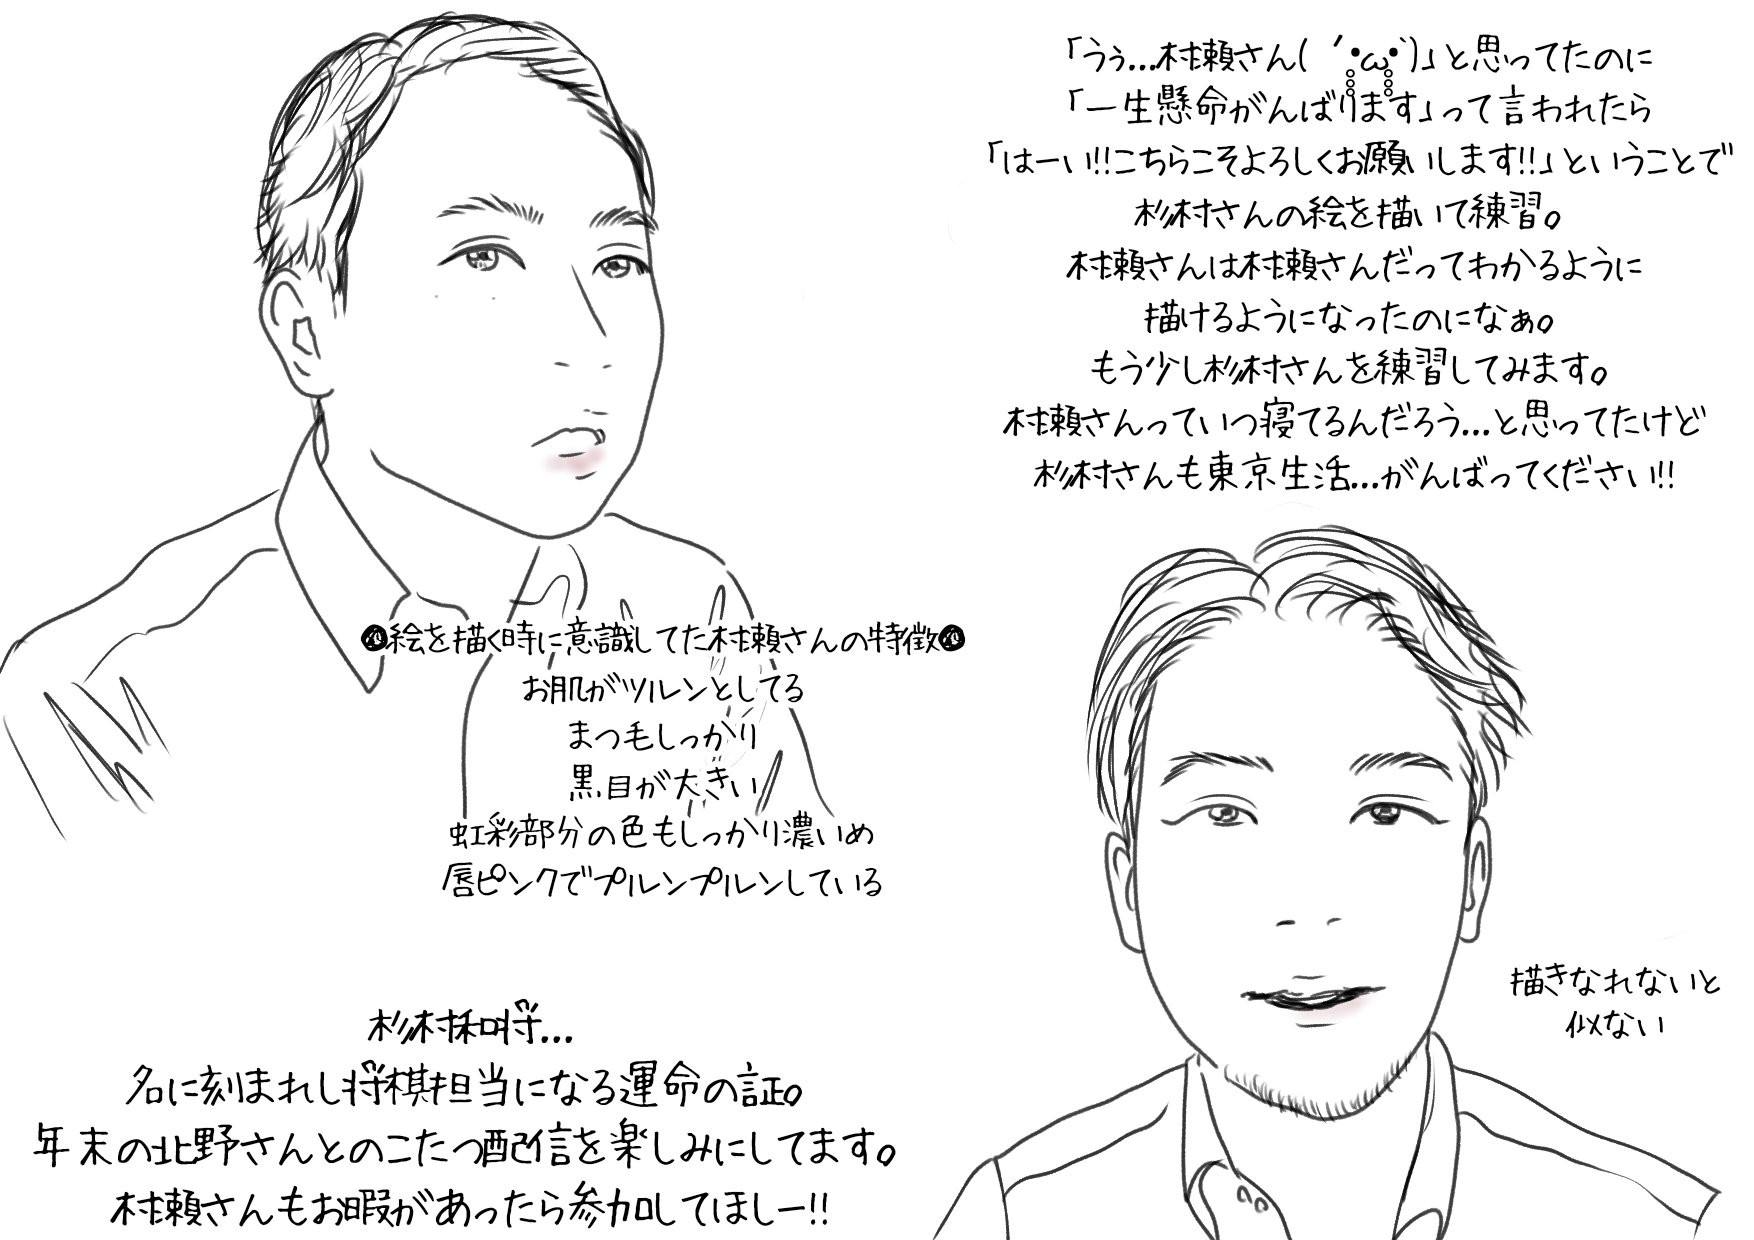 「うぅ…村瀬さん( ´•̥̥̥ω•̥̥̥`)」と思ってたのに
「一生懸命がんばります」って言われたら
「はーい!!こちらこそよろしくお願いします!!」ということで
杉村さんの絵を描いて練習。
村瀬さんは村瀬さんだってわかるように
描けるようになったのになぁ。
もう少し杉村さんを練習してみます。
村瀬さんっていつ寝てるんだろう…と思ってたけど
杉村さんも東京生活…がんばってください!!
絵を描く時に意識してた村瀬さんの特徴
お肌がツルンとしてる
まつ毛しっかり
黒目が大きい
虹彩部分の色もしっかり濃いめ
唇ピンクでプルンプルンしている
描きなれないと
似ない
杉村和将…
名に刻まれし将棋担当になる運命の証。
年末の北野さんとのこたつ配信を楽しみにしてます。
村瀬さんもお暇があったら参加してほしー!!